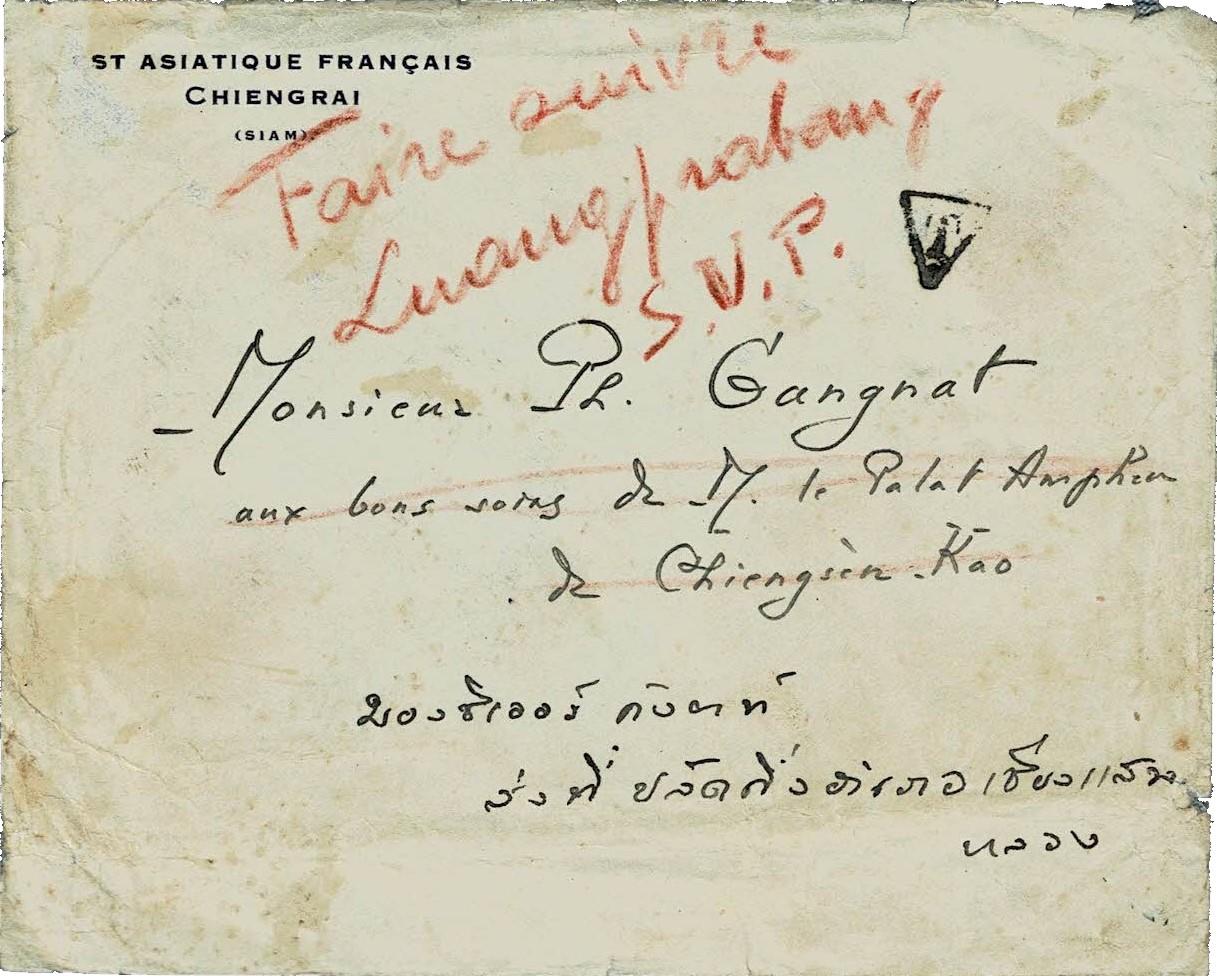 ST ASIATIQUE FRANÇAIS
CHIENGRAI
(SIAM)
Faire suivre
Luangprabang
S.V.P.
Monsieur Ph. Gangnat
aux bons soins de M. le Palat Ampheu
de Chiengsèn-Kao
มองซิเออร์ กังนาท์
ส่งที่ ปลัดกิ่งอำเภอเชียงแสน
หลวง